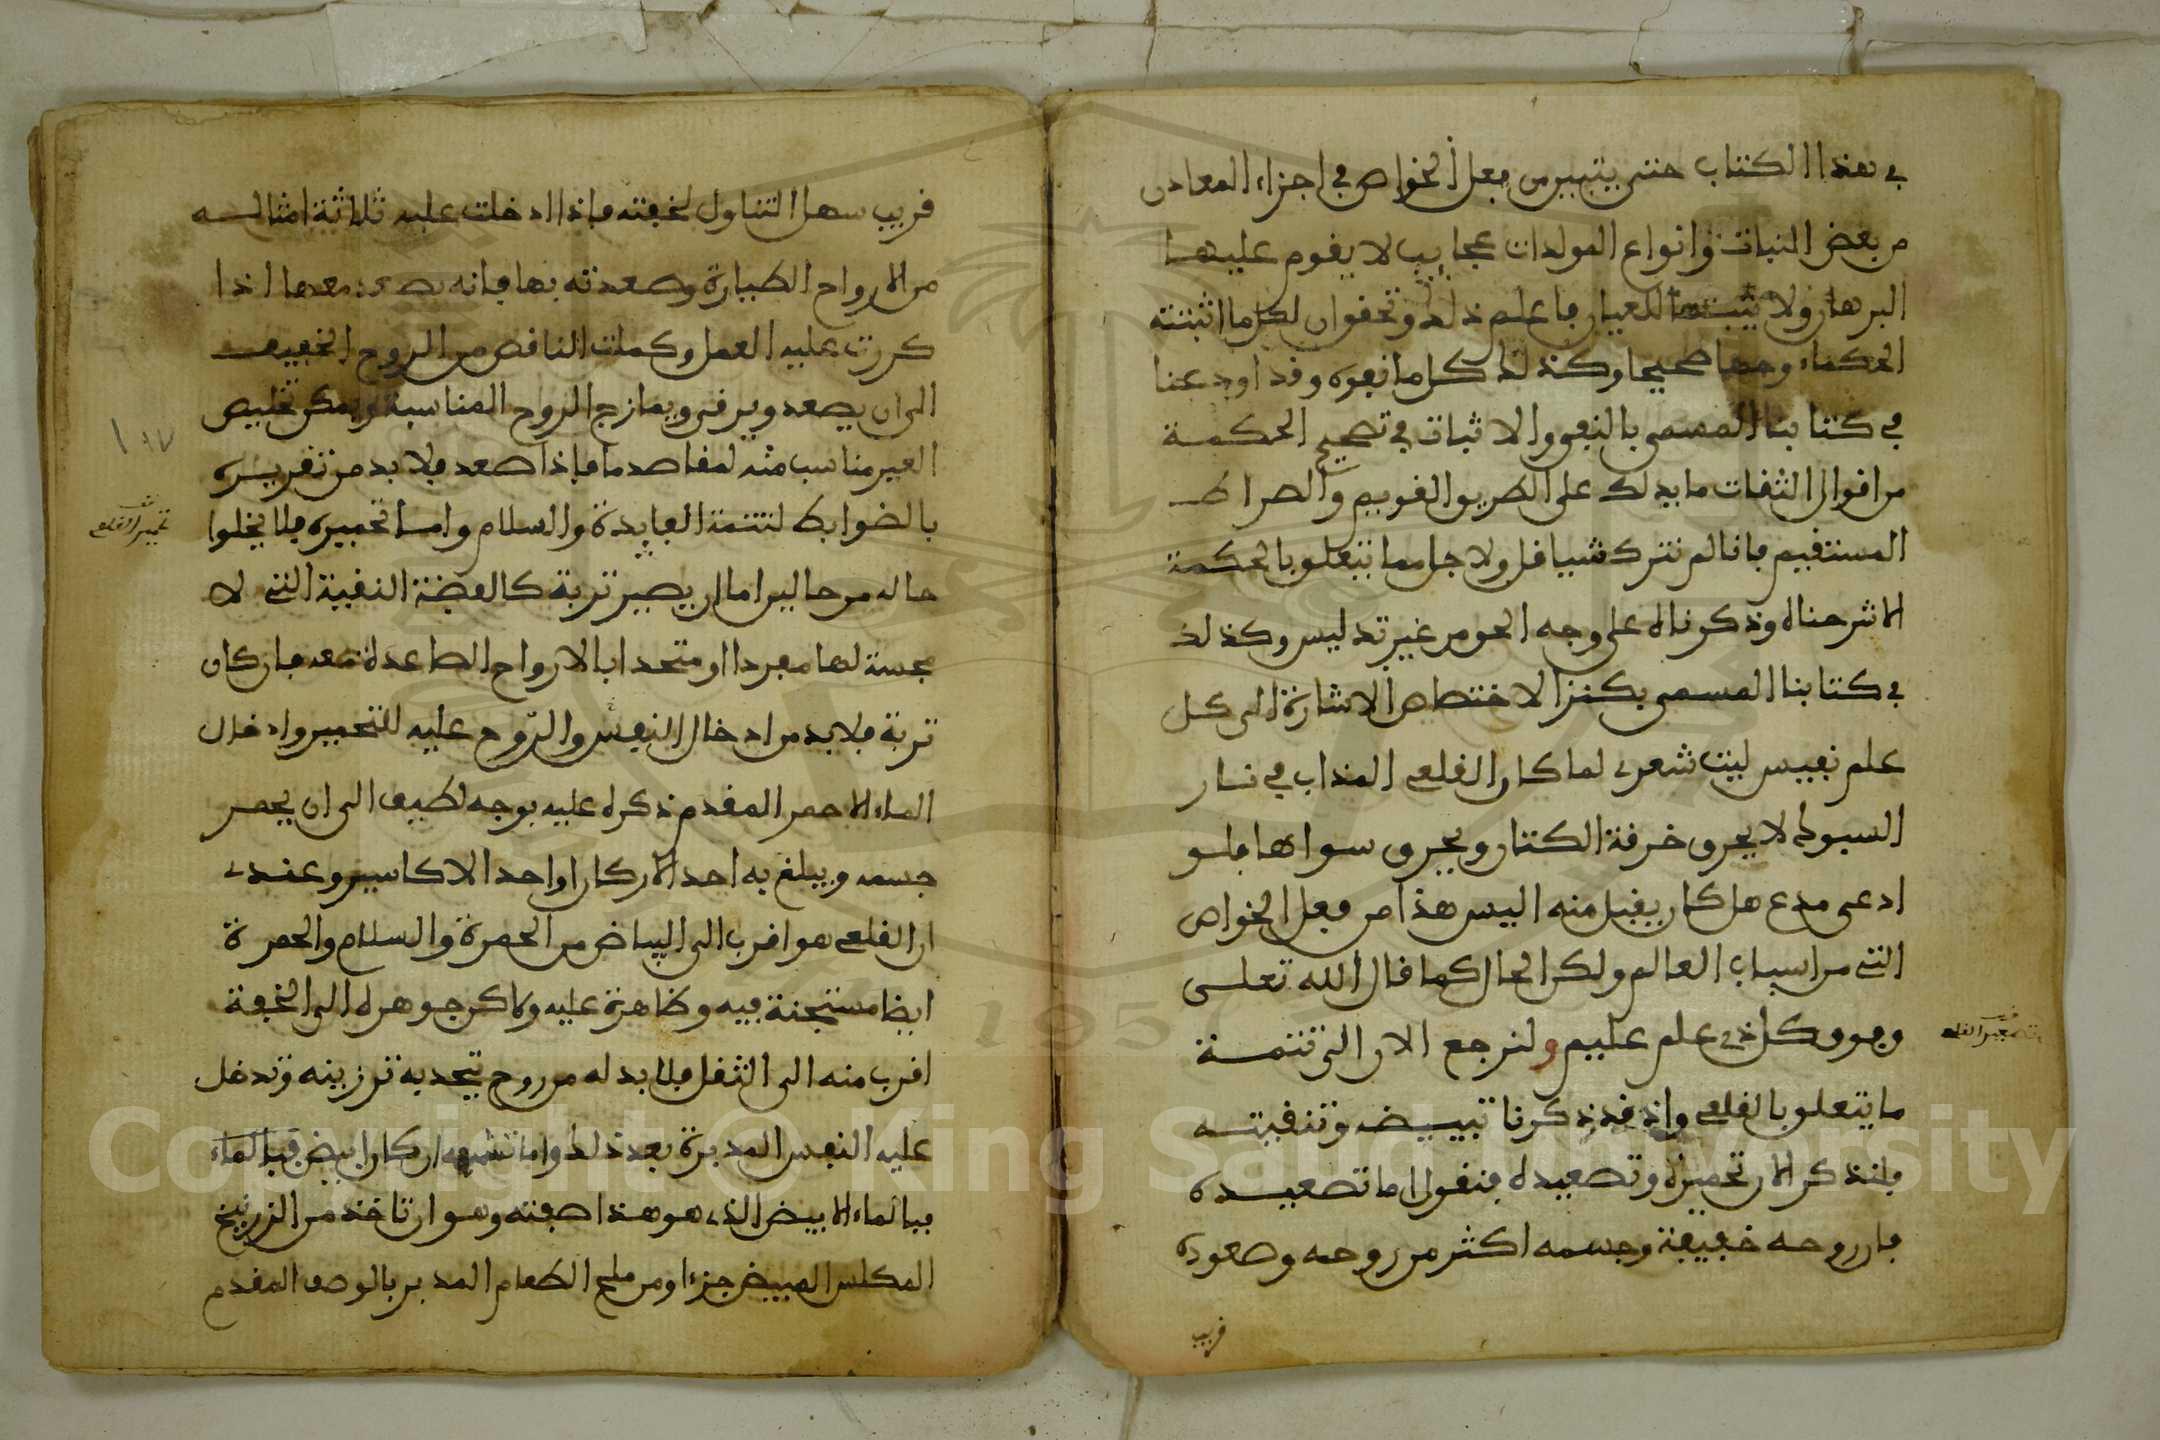 في هذا الكتاب حتى يتبين من فعل الخواص في اجزاء المعادن
من بعض النبات وانواع المولدات عجايب لا يقوم عليها
البرهان ولا يثبتها العيان فاعلم ذلك وتحقق ان لكل ما اثبتته
الحكماء وجها صحيحا وكذلك كل ما نفوه وقد اودعنا
في كتابنا المسمى بالنفي والاثبات في تصحيح الحكمة
من اقوال الثقات ما يدلك على الطريق القويم والصراط
المستقيم فانا لم نترك شيا قل ولا جل مما يتعلق بالحكمة
الا شرحناه وذكرناه على وجه الحق من غير تدليس وكذلك
في كتابنا المسمى بكنز الاختصاص الاشارة الى كل
علم نفيس ليت شعري لما كان القلعي المذاب في نار
السبوك لا يحرق خرقة الكتان ويحرق سواها فلو
ادعى مدع هل كان يقبل منه اليس هذا من فعل الخواص
التي من اسباب العالم ولكن الحال كما قال الله تعلى
وفوق كل ذي علم عليم ولنرجع الان الى تتمة
ما يتعلق بالقلعي واذ قد ذكرنا تبييضه وتنقيته
فلنذكر الان تحميره وتصعيده فنقول اما تصعيده
فان روحه خفيفة وجسمه اكثر من روحه وصعوده
قريب
قريب سهل التناول لخفته فاذا ادخلت عليه ثلاثة امثاله
من الارواح الطيارة وصعدته بها فانه يصعد معها اذا
كررت عليه العمل وكملت الناقص من الروح الخفيف
الى ان يصعد ويرقى ويمازج الروح المناسبة ويمكن تخليص
الغير مناسب منه لمقاصد ما فاذا صعد فلا بد من تقريره
بالضوابط لتتمة الفايدة والسلام واما تحميره فلا يخلوا
حاله من حالين اما ان يصير تربة كالفضة النقية التي لا
مجسة لها مفردا او متحدا بالارواح الصاعدة معه فان كان
تربة فلا بد من ادخال النفس والروح عليه للتحمير وادخال
الماء الاحمر المقدم ذكره عليه بوجه لطيف الى ان يحمر
جسمه ويبلغ به احد الاركان او احد الاكاسير وعندي
ان القلعي هو اقرب الى البياض من الحمرة والسلام والحمرة
ايضا مستجنة فيه وظاهرة عليه ولاكن جوهره الى الخفة
اقرب منه الى الثقل فلا بد له من روح يتحد به ترزينه وتدخل
عليه النفس المدبرة بعد ذلك واما تشميعه ان كان ابيض فبالماء
فبالماء الابيض الذي هو هذا صفته وهو ان تاخذ من الزرنيخ
المكلس المبيض جزءا ومن ملح الطعام المدبر بالوصف المقدم
تحمير القلعي